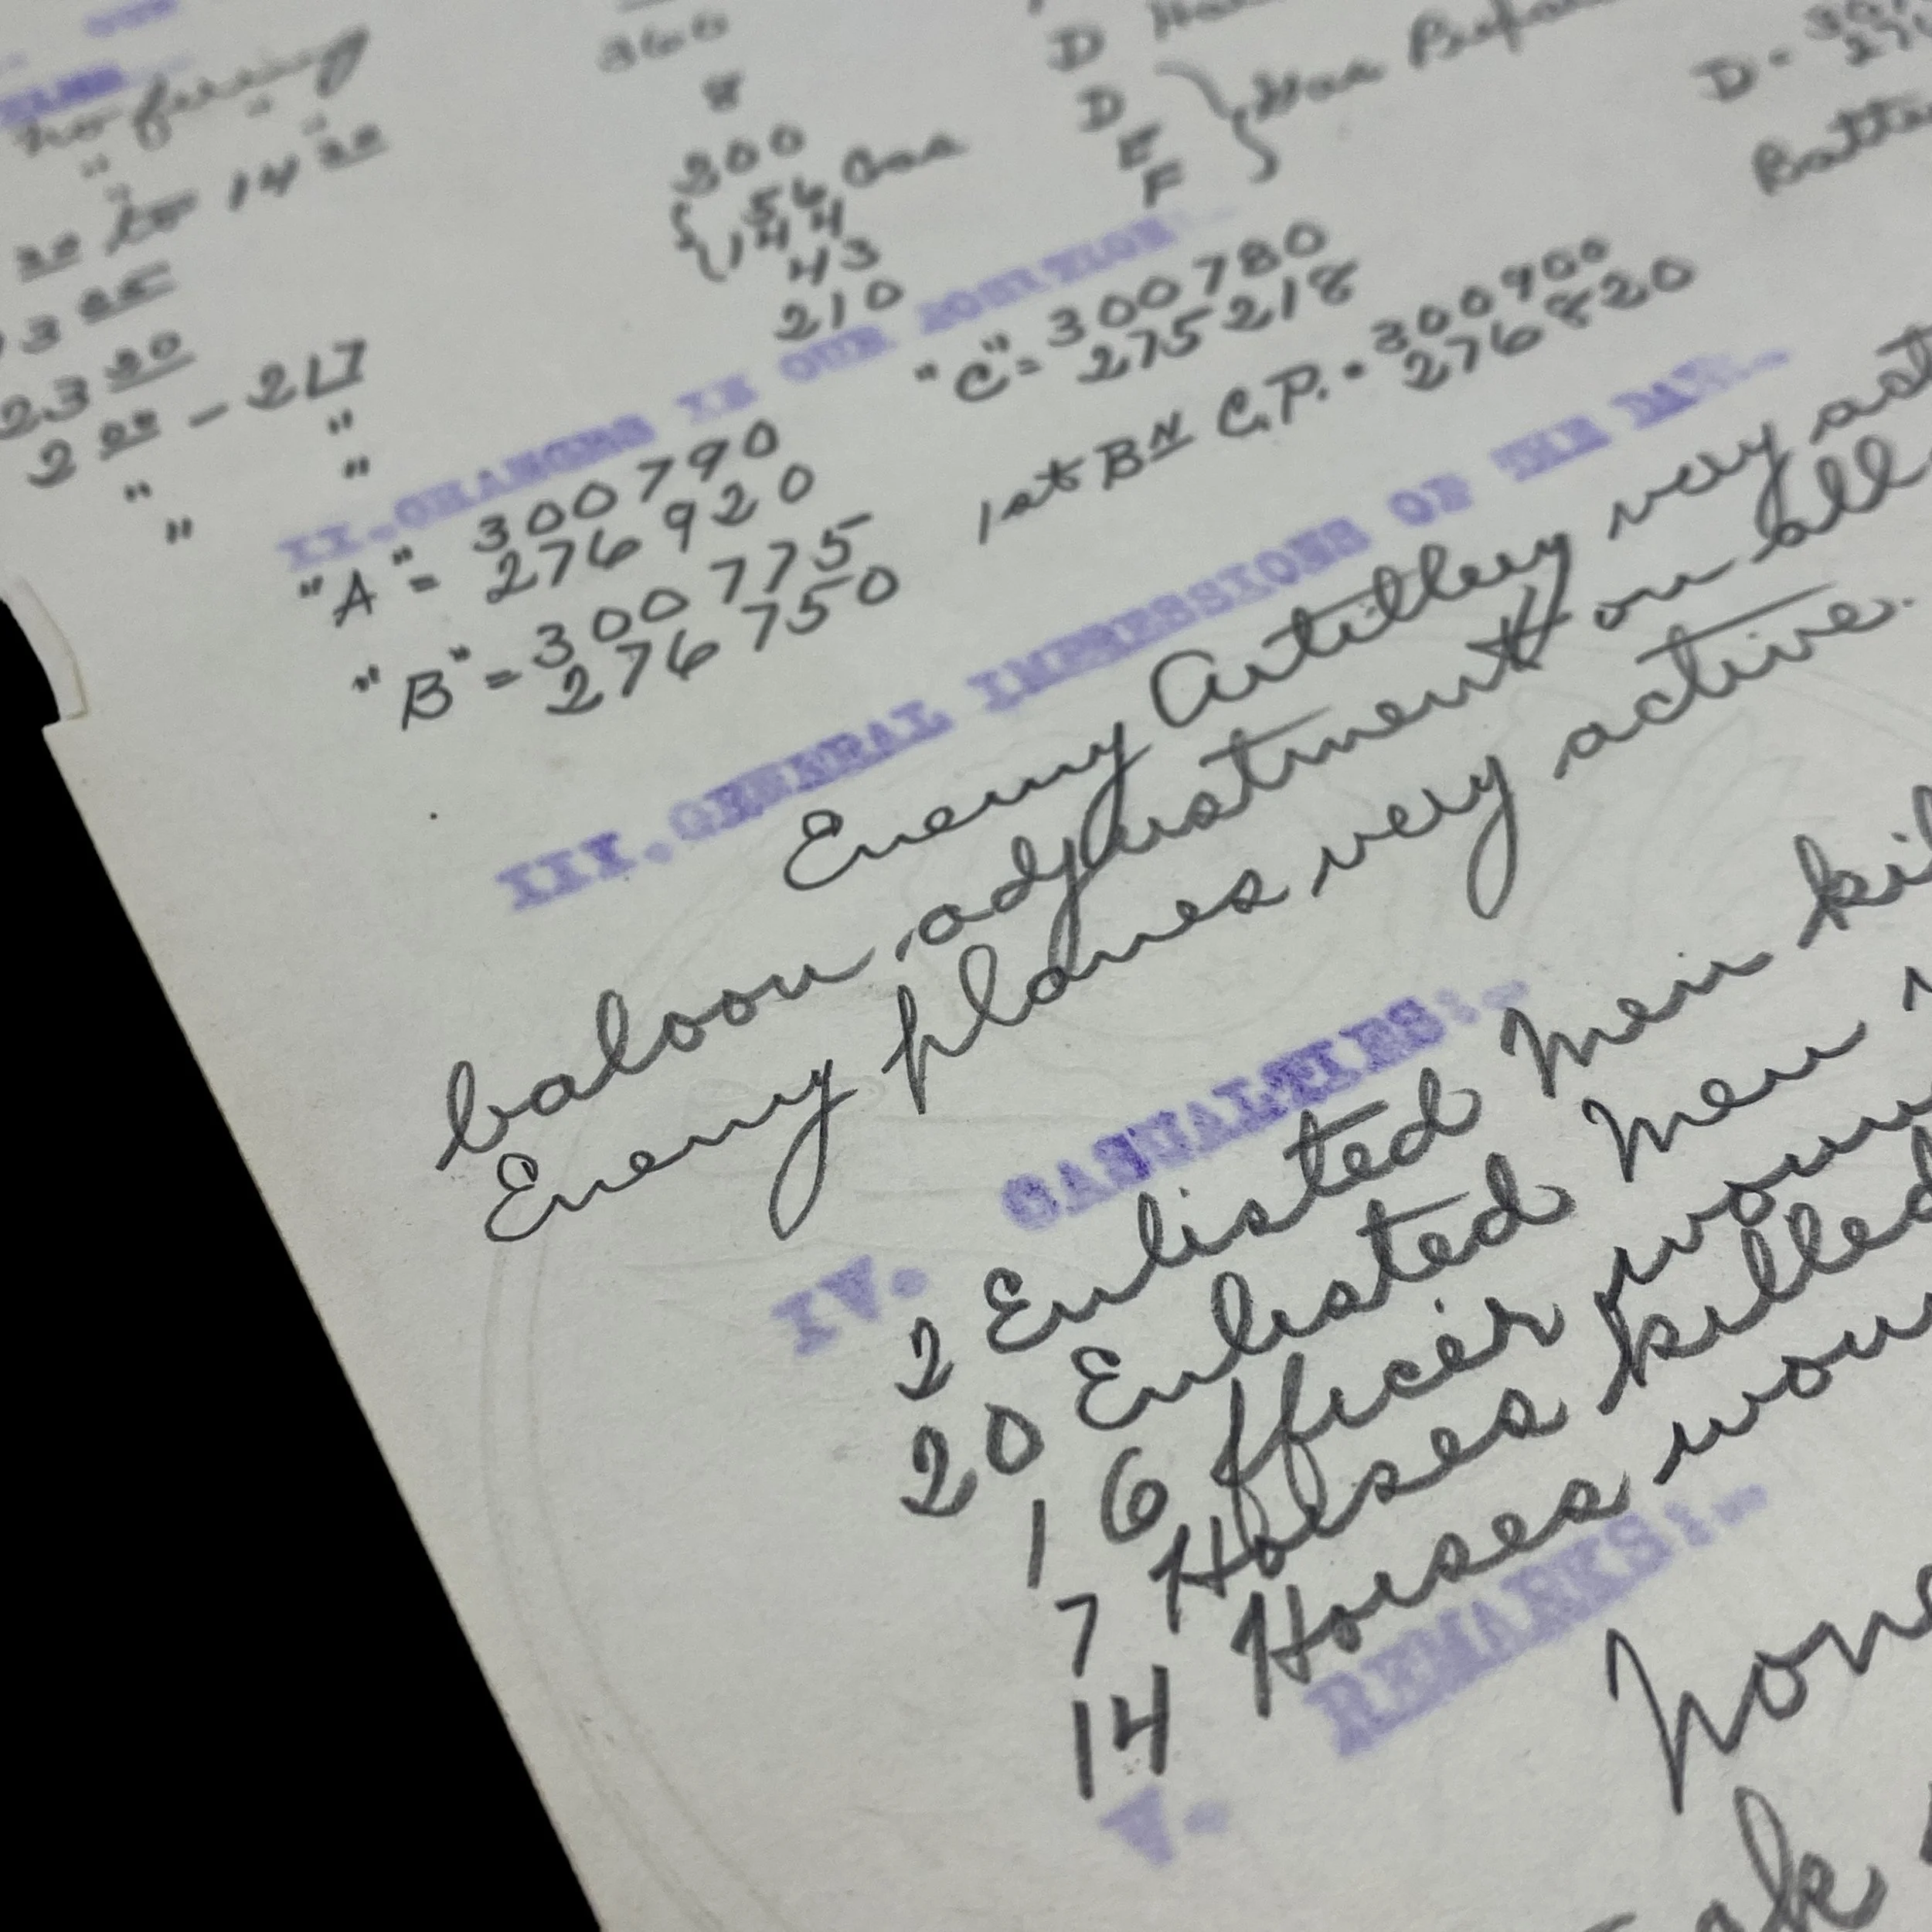 no firing
" "
" "
30 to 14 30
366
8
300
56 Gas
144
43
210
D
D
E
F
Gas
D -
23 30
2 00 - 217
" "
" "
II. CHANGES IN OUR POSITION
"A" = 300790
276920
"B" = 300775
276750
"C" = 300780
275218
1st Bn C.P. - 300900
276820
III. GENERAL IMPRESSIONS OF THE DAY.-
Enemy Artillery very
baloon adjustment on all
Enemy planes very active.
IV. CASUALTIES:-
2 Enlisted Men
20 Enlisted Men
1 Officer
7 Horses killed
14 Horses
V. REMARKS:-